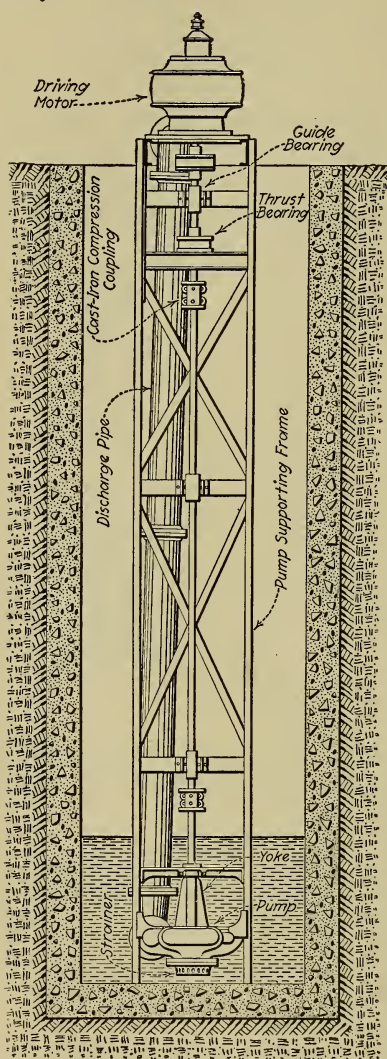 Driving
Motor
Guide
Bearing
Thrust
Bearing
Cast-Iron Compression
Coupling
Discharge Pipe
Pump Supporting Frame
Yoke
Pump
Strainer